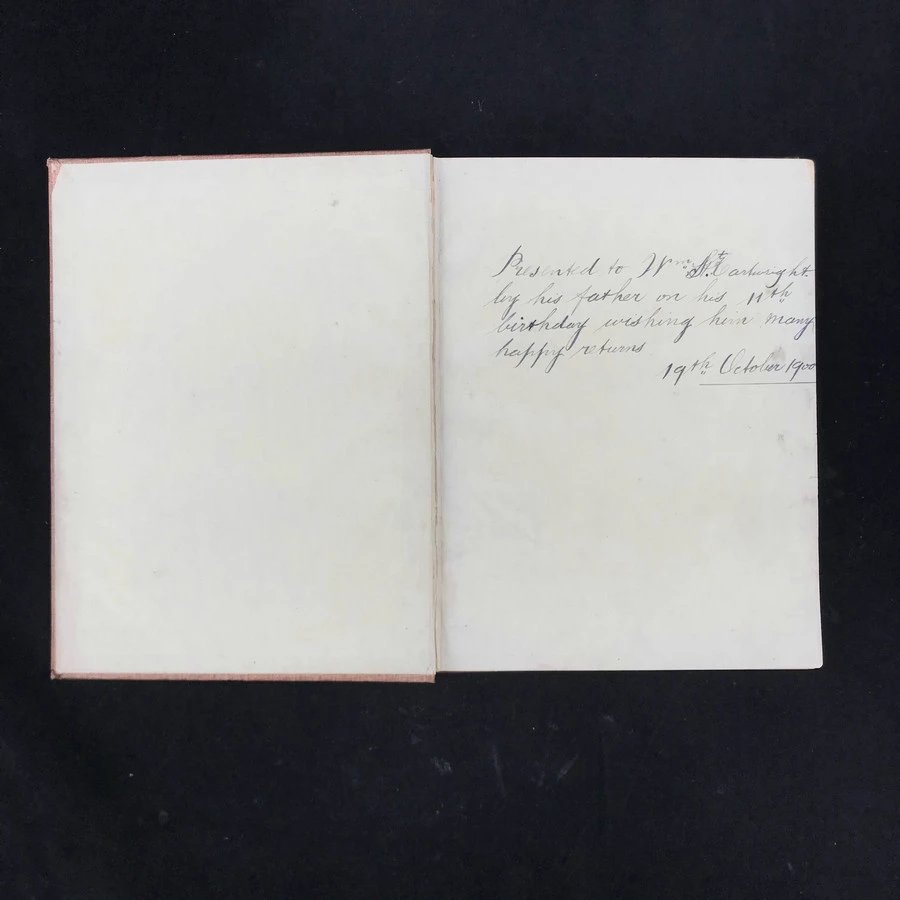 Presented to Wm Cartwright.
by his father on his 11th
birthday wishing him many
happy returns
19th October 1900